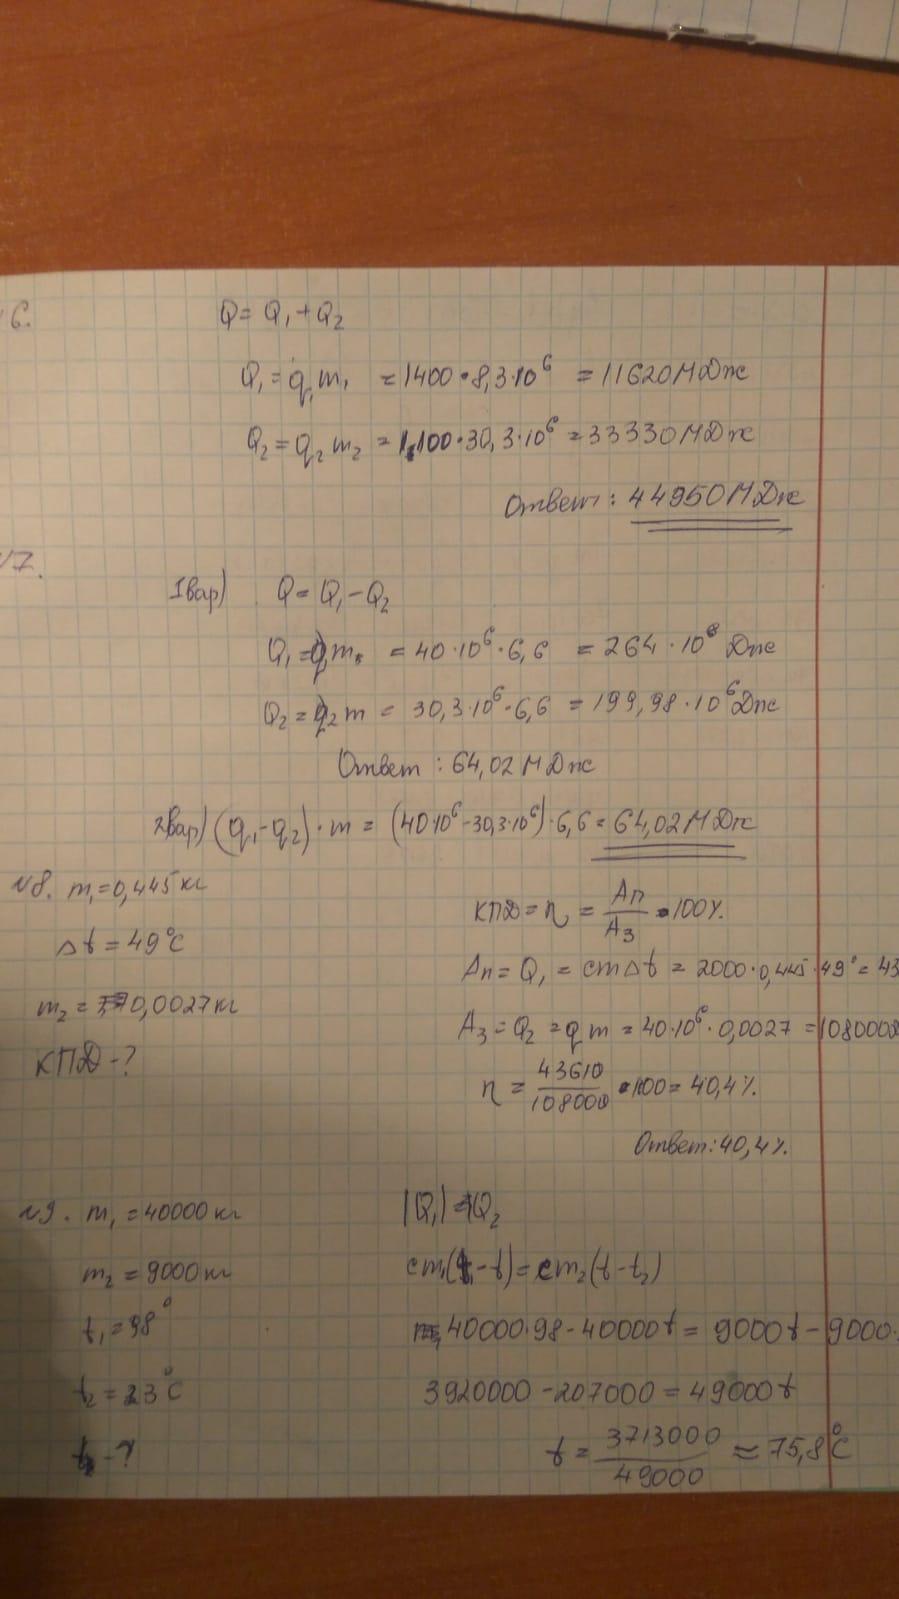 6.
Q = Q₁ + Q₂
Q₁ = q₁m₁ = 1400 • 8,3·10⁶ = 11620 МДж
Q₂ = q₂ m₂ = 1100 · 30,3·10⁶ = 33330 МДж
Ответ: 44950 МДж
№7.
1вар) Q = Q₁ - Q₂
Q₁ = q₁m = 40·10⁶·6,6 = 264·10⁶ Дж
Q₂ = q₂m = 30,3·10⁶·6,6 = 199,98·10⁶ Дж
Ответ: 64,02 МДж
2вар) (q₁-q₂)·m = (40·10⁶-30,3·10⁶)·6,6 = 64,02 МДж
№8. m₁ = 0,445 кг
КПД = η = Ап/Аз • 100%.
Δt = 49°C
Ап = Q₁ = cmΔt = 2000·0,445·49° = 43
m₂ = 0,0027 кг
Аз = Q₂ = qm = 40·10⁶·0,0027 = 108000
КПД - ?
η = 43610/108000 • 100 = 40,4%.
Ответ: 40,4%.
№9. m₁ = 40000 кг
|Q₁| = Q₂
m₂ = 9000 кг
cm₁(t₁-t) = cm₂(t-t₂)
t₁ = 98°
40000·98 - 40000t = 9000t - 9000·
t₂ = 23°C
3920000 - 207000 = 49000t
t - ?
t = 3713000/49000 ≈ 75,8°C